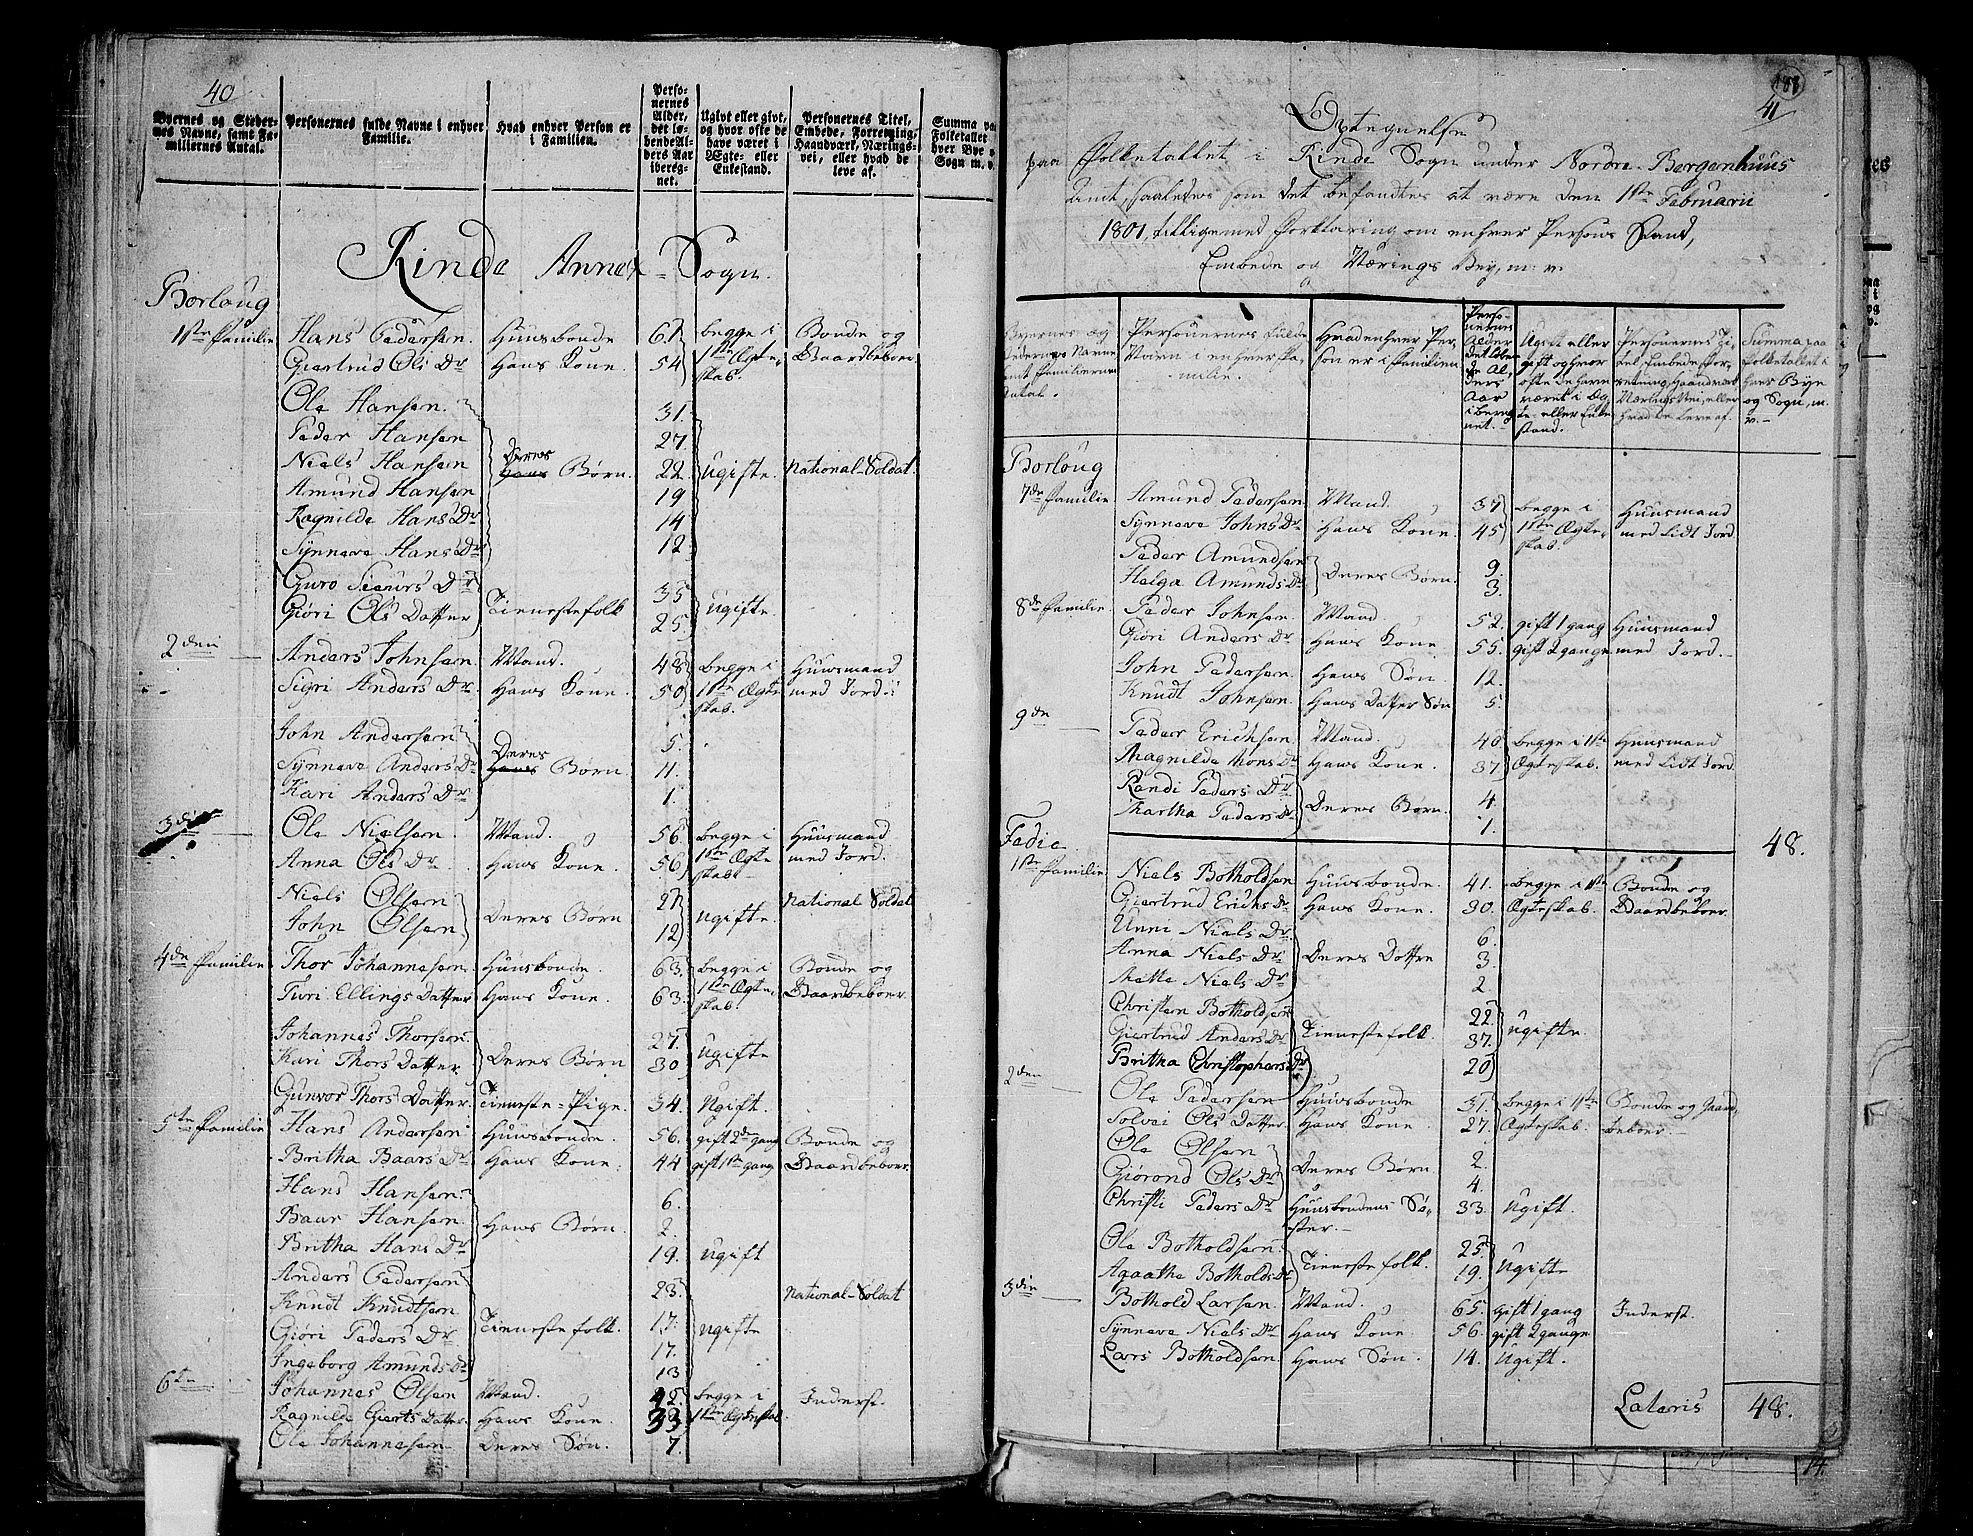 40
Byernes og Steder-
nes Navne, samt Fa-
miliernes Antal.
Personernes fulde Navne i enhver
Familie.
Hvad enhver Person er
i Familien.
Perso-
nernes
Alder,
det lø-
bende Al-
ders Aar
iberegnet.
Ugivt eller givt,
og hvor ofte de
have været i
Ægte- eller
Enkestand.
Personernes Titel,
Embede, Forretning,
Haandværk, Nærings-
vei, eller hvad de
leve af.
Summa paa
Folketallet
hver Bye
Sogn m. v.
Rinde Annex-Sogn.
Borloug
1ste Familie Hans Pedersen Huusbonde 67 begge i Bonde og
Giertrud Ols Dr Hans Kone. 54 1ste Ægte- Gaardbeboer
skab.
Ole Hansen. 31.
Peder Hansen 27
Niels Hansen Deres Hans Børn. 22 Ugifte. National-Soldat.
Amund Hansen 19
Ragnilde Hans Dr 14
Synneve Hans Dr 12
Guro Siurs Dr 35
Giøri Ols Datter Tienestefolk 25. Ugifte.
2den Anders Johnsen Mand. 48 begge i Huusmand
Sigri Anders Dr Hans Kone. 50 1ste Ægte med Jord.
skab.
John Andersen 5.
Synneve Anders Dr Deres Hans Børn. 11.
Kari Anders Dr 1.
3die Ole Nielsen Mand. 56 begge i Huusmand
Anna Ols Dr Hans Kone. 56 1ste Ægte med Jord.
skab.
Niels Olsen 21 National Soldat
John Olsen Deres Børn 12 Ugifte.
4de Familie Thor Johannesen Huusbonde. 63. begge i Bonde og
Turi Ellings Datter Hans Kone. 63. 1ste Ægte- Gaardbeboer.
skab.
Johannes Thorsen 27.
Kari Thors Datter Deres Børn 30 Ugifte
Gunvor Thors Datter Tieneste-Pige. 34. Ugift.
5te Familie Hans Andersen Huusbonde. 56. gift 2de gang Bonde og
Britha Baars Dr Hans Kone. 44 gift 1ste gang Gaardbeboer.
Hans Hansen 6.
Baar Hansen Hans Børn. 2.
Britha Hans Dr 19. Ugift
Anders Pedersen 23. National-Soldat
Knudt Knudtsen 17.
Giøri Peders Dr Tienestefolk. 17. Ugifte
Ingeborg Amunds Dr 13
6te Johannes Olsen Mand. 42. begge i Inderst.
Ragnilde Gierts Datter Hans Kone. 33 1ste Ægteskab.
Ole Johannesen Deres Søn. 7.
188
41
Optegnelse
paa Folketallet i Rinde Sogn under Nordre-Bergenhuus
Amt, saaledes som det befandtes at være den 1ste Februarii
1801, tilligemed Forklaring om enhver Persons Stand,
Embede og Nærings Vey, m: v.
Byernes og
Stedernes Navne
samt Familiernes
Antal.
Personernes fulde
Navn i enhver Fa-
milie.
Hvad enhver Per-
son er i Familien
Perso-
nernes
Alder
det løben-
de Al-
ders
Aar
ibereg-
net.
Ugift eller
gift og hvor
ofte de have
været i Æg-
te- eller Enke-
stand.
Personernes Ti-
tel, Embede, For-
retning, Haandværk
Nærings Vei, eller
hvad de leve af.
Summa paa
folketallet i
hver Bye
og Sogn, m.
v.
Borloug
7de Familie Amund Pedersen Mand. 37 begge i Huusmand
Synneve Johns Dr Hans Kone. 45 1ste Ægte- med lidt Jord.
skab
Peder Amundsen 9.
Helga Amunds Dr Deres Børn. 3.
8de Familie. Peder Johnsen Mand. 52. gift 1 gang Huusmand
Giøri Anders Dr Hans Kone. 55. gift 2 gange med Jord.
John Pedersen Hans Søn. 12.
Knudt Johnsen. Hans Datter Søn 5.
9de Peder Erichsen Mand. 40. begge i 1ste Huusmand
Magnilde Mons Dr Hans Kone. 37. Ægteskab. med lidt Jord.
Randi Peders Dr Deres Børn. 4.
Martha Peders Dr 1.
48.
Fedie.
1ste Familie Niels Botholdsen Huusbonde. 41. begge i 1ste Bonde og
Giertrud Erichs Dr Hans Kone. 30. Ægteskab. Gaardbeboer.
Unni Niels Dr 6.
Anna Niels Dr Deres Døttre 3.
Mette Niels Dr 2.
Christen Botholdsen 22.
Giertrud Anders Dr Tienestefolk. 37. Ugifte.
Britha Christophers Dr 20
2den Ole Pedersen Huusbonde 37. begge i 1ste Bonde og Gaard-
Solvei Ols Datter Hans Kone. 27. Ægteskab. beboer.
Ole Olsen 2.
Giørond Ols Dr Deres Børn. 4.
Christi Peders Dr Huusbondens Sø- 33. Ugift.
ster.
Ole Botholdsen 25
Agaathe Botholds Dr Tienestefolk. 19. Ugifte
3die Bothold Larsen. Mand. 65. gift 1 gang Inderst.
Synneve Niels Dr Hans Kone 56. gift 2 gange
Lars Botholdsen. Hans Søn. 14. Ugift.
Lateris 48.
14.